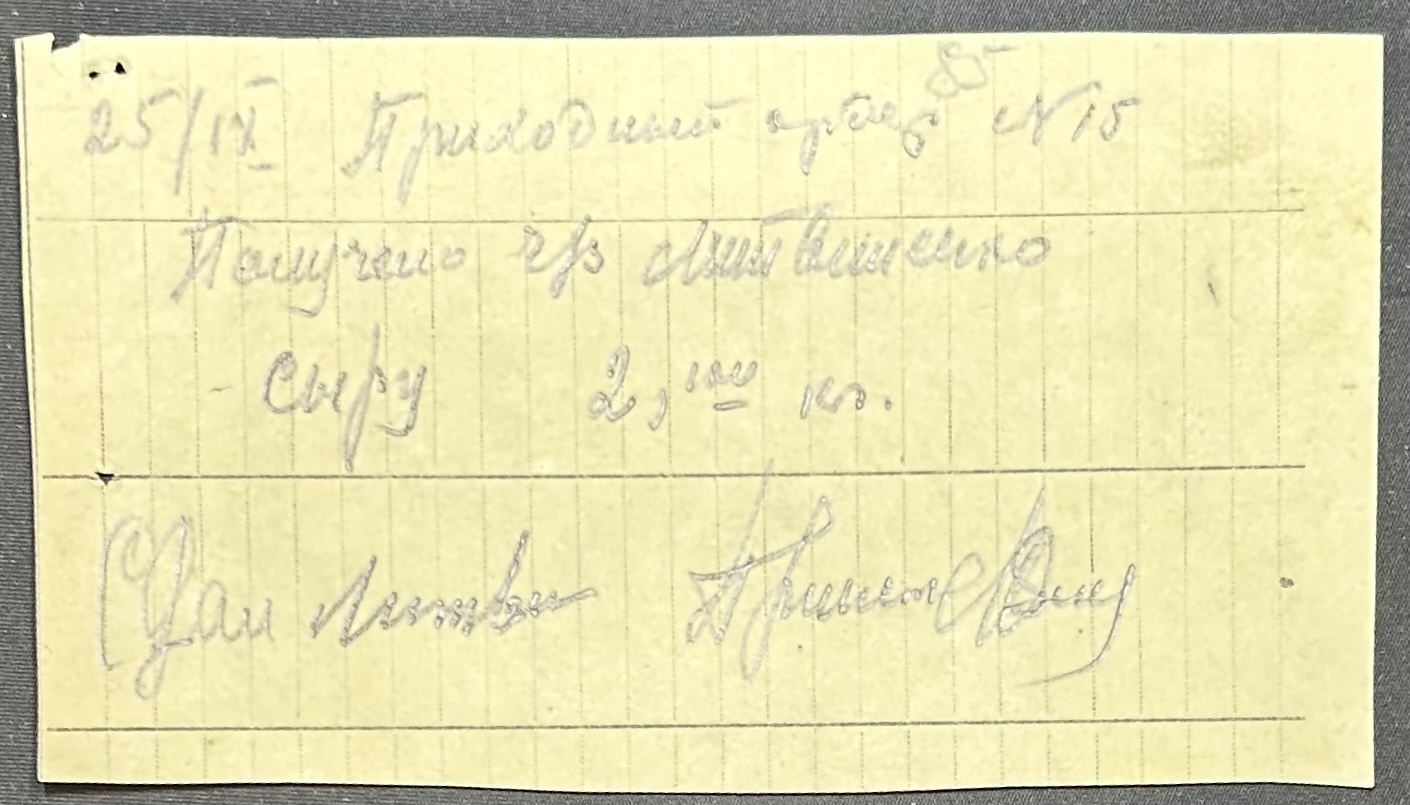 85
25/IX Приходный ордер № 15
Получено ч/з Литвиненко
- Сыру 2,100 кг.
Сдал Литви Принял